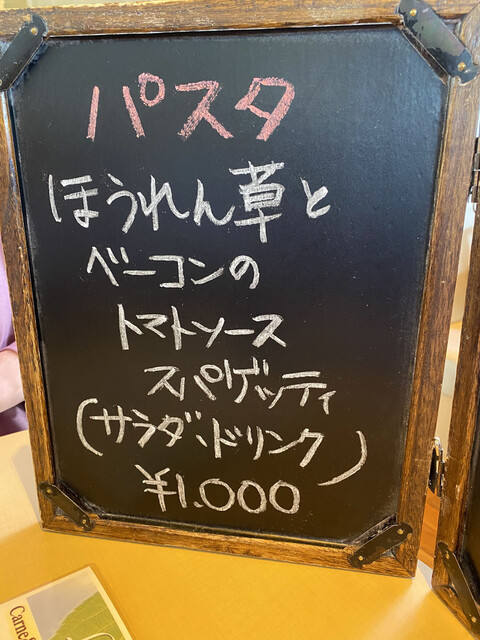 パスタ
ほうれん草と
ベーコンの
トマトソース
スパゲッティ
(サラダ、ドリンク)
¥1.000
Carne